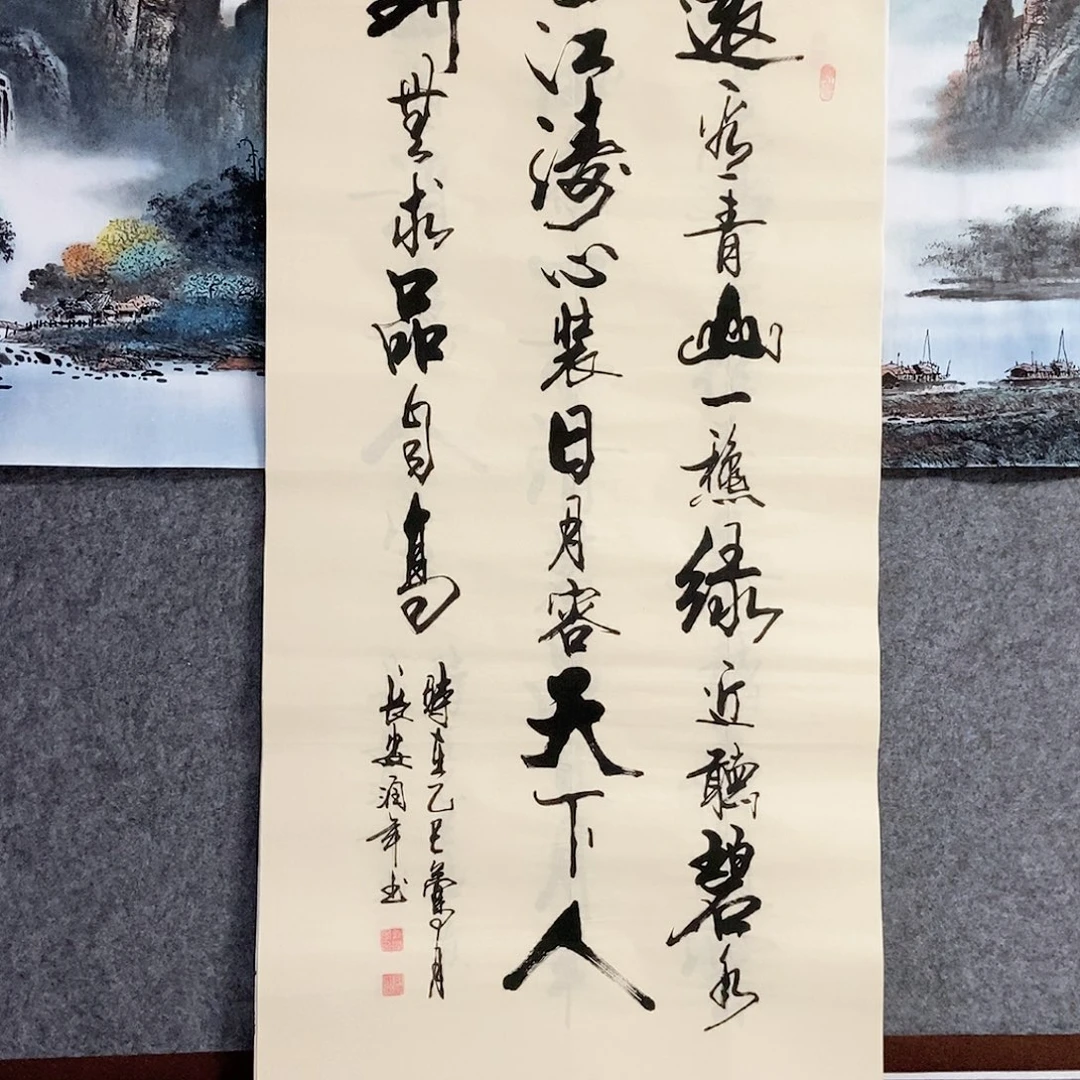 遠看青山一綠近聽碧水
江濤心裝日月容天下人
無求品自高
時在乙巳月
長安潤年書